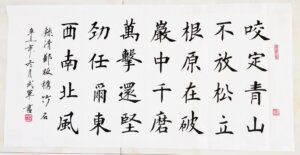 咬定青山
不放松立
根原在破
巖中千磨
萬擊還堅
劲任爾東
西南北風
清鄭板橋竹石
辛丑年冬月書